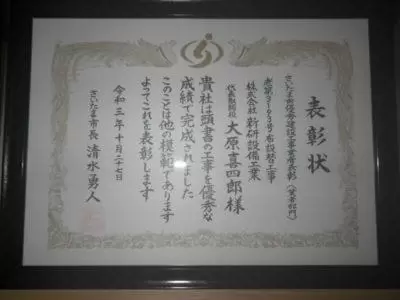 表彰状
さいたま市優秀建設工事業者表彰（業者部門）
老第3193号布設替工事
株式会社 新研設備工業
代表取締役 大原喜四郎様
貴社は頭書の工事を優秀な
成績で完成されました
このことは他の模範であります
よってこれを表彰します
令和三年十月二十七日
さいたま市長 清水勇人